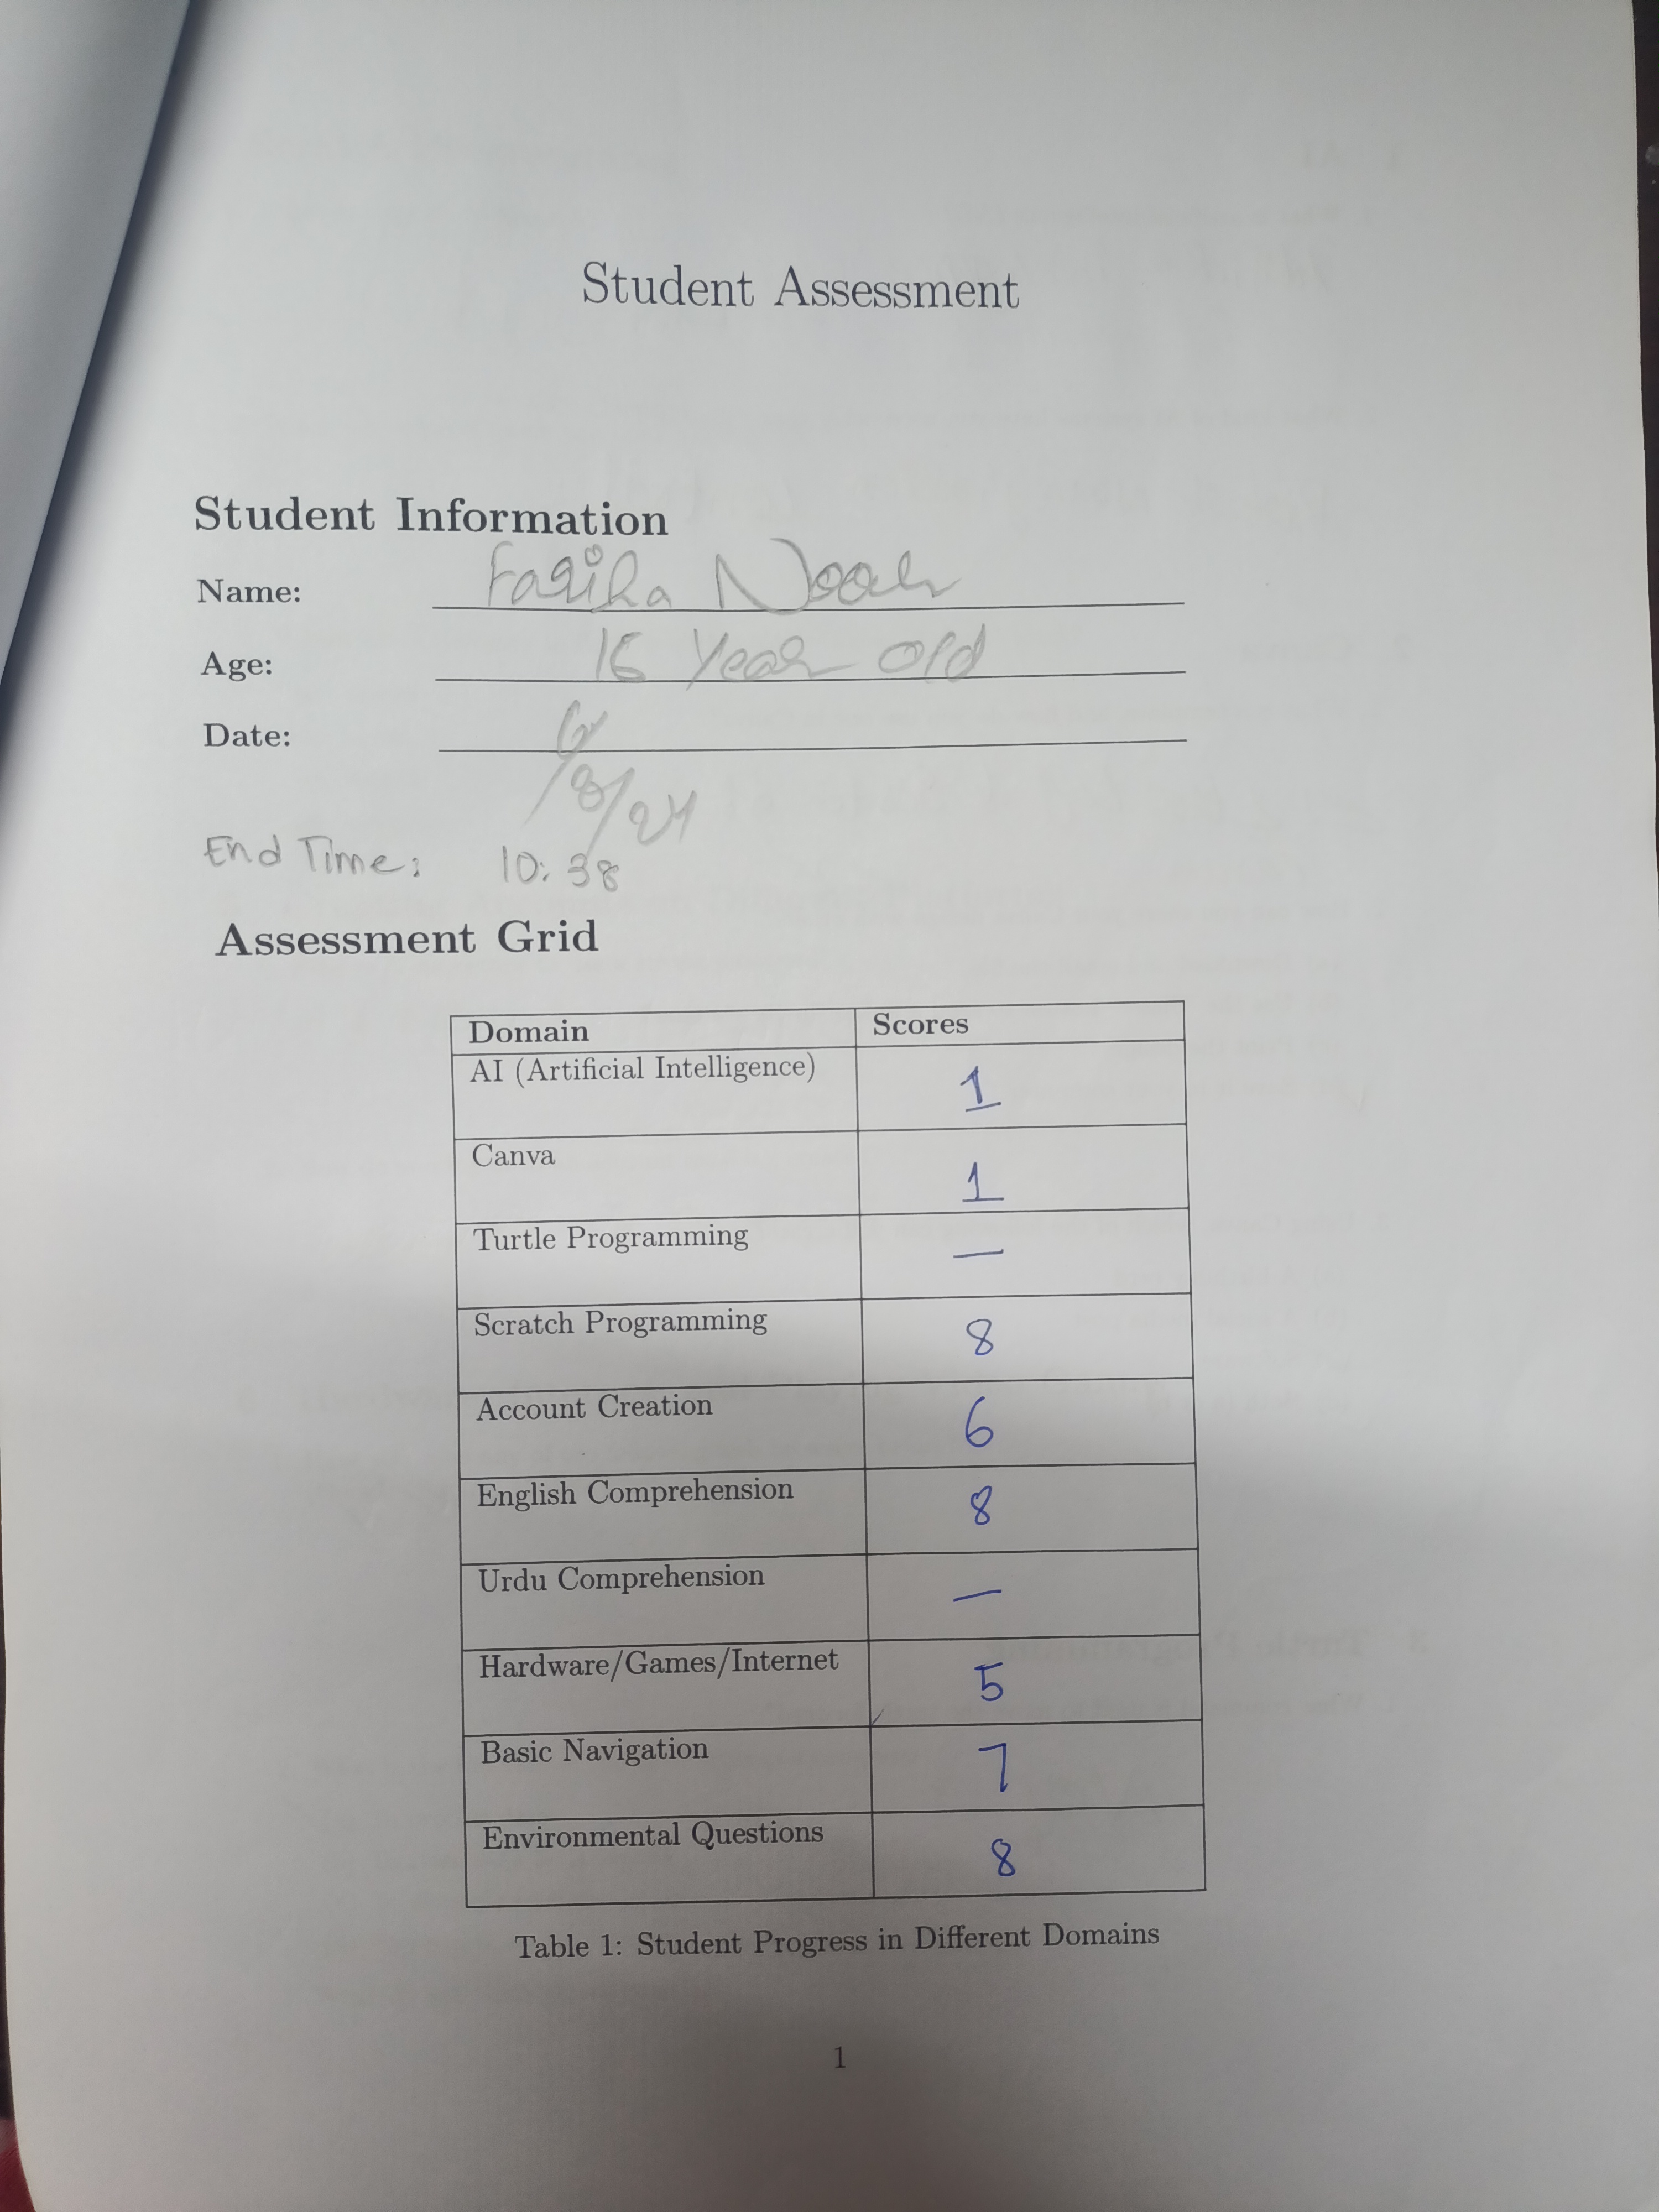 Student Assessment
Student Information
Name: Fariha Noor
Age: 16 Year old
Date: 6/8/24
End Time: 10:38
Assessment Grid
Domain Scores
AI (Artificial Intelligence) 1
Canva 1
Turtle Programming —
Scratch Programming 8
Account Creation 6
English Comprehension 8
Urdu Comprehension —
Hardware/Games/Internet 5
Basic Navigation 7
Environmental Questions 8
Table 1: Student Progress in Different Domains
1